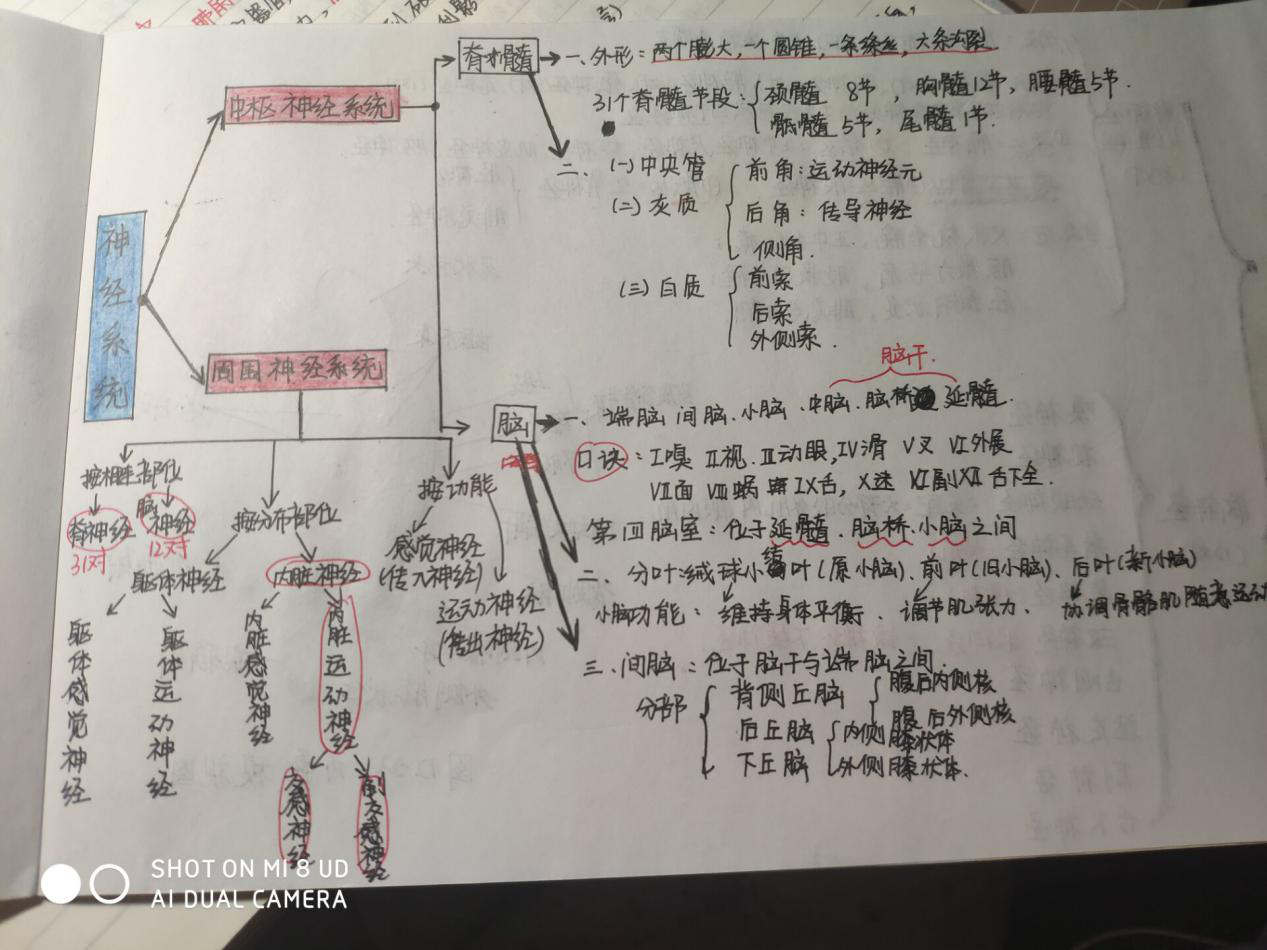 神经系统
中枢神经系统
脊髓
一、外形：两个膨大，一个圆锥，一条终丝，六条沟裂
31个脊髓节段：颈髓 8节，胸髓12节，腰髓5节
骶髓5节，尾髓1节.
二、(一)中央管
(二)灰质
前角：运动神经元
后角：传导神经
侧角.
(三)白质
前索
后索
外侧索.
脑
脑干.
一、端脑 间脑.小脑.中脑.脑桥 延髓.
口诀：I嗅 II视.III动眼,IV滑 V叉 VI外展
VII面 VIII蜗 IX舌，X迷 XI副XII舌下全.
第四脑室：位于延髓.脑桥.小脑之间
二、分叶:绒球小结叶(原小脑)、前叶(旧小脑)、后叶(新小脑)
小脑功能：维持身体平衡、调节肌张力、协调骨骼肌随意运动
三、间脑：位于脑干与端脑之间.
分部
背侧丘脑
腹后内侧核
腹后外侧核
后丘脑
内侧膝状体
外侧膝状体.
下丘脑
周围神经系统
按相连部位
脊神经
31对
脑神经
12对
按分布部位
躯体神经
躯体感觉神经
躯体运动神经
内脏神经
内脏感觉神经
内脏运动神经
交感神经
副交感神经
按功能
感觉神经
(传入神经)
运动神经
(传出神经)
SHOT ON MI 8 UD
AI DUAL CAMERA